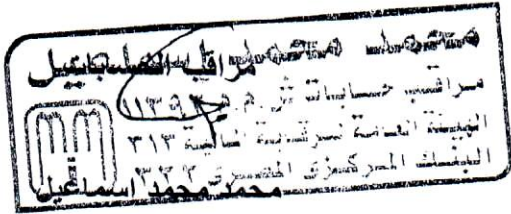 محمد محمد
مراقب الحسابات
مراقب حسابات ش.م.م
الهيئة العامة للرقابة المالية ٣١٣
البنك المركزى المصرى
محمد محمد اسماعيل